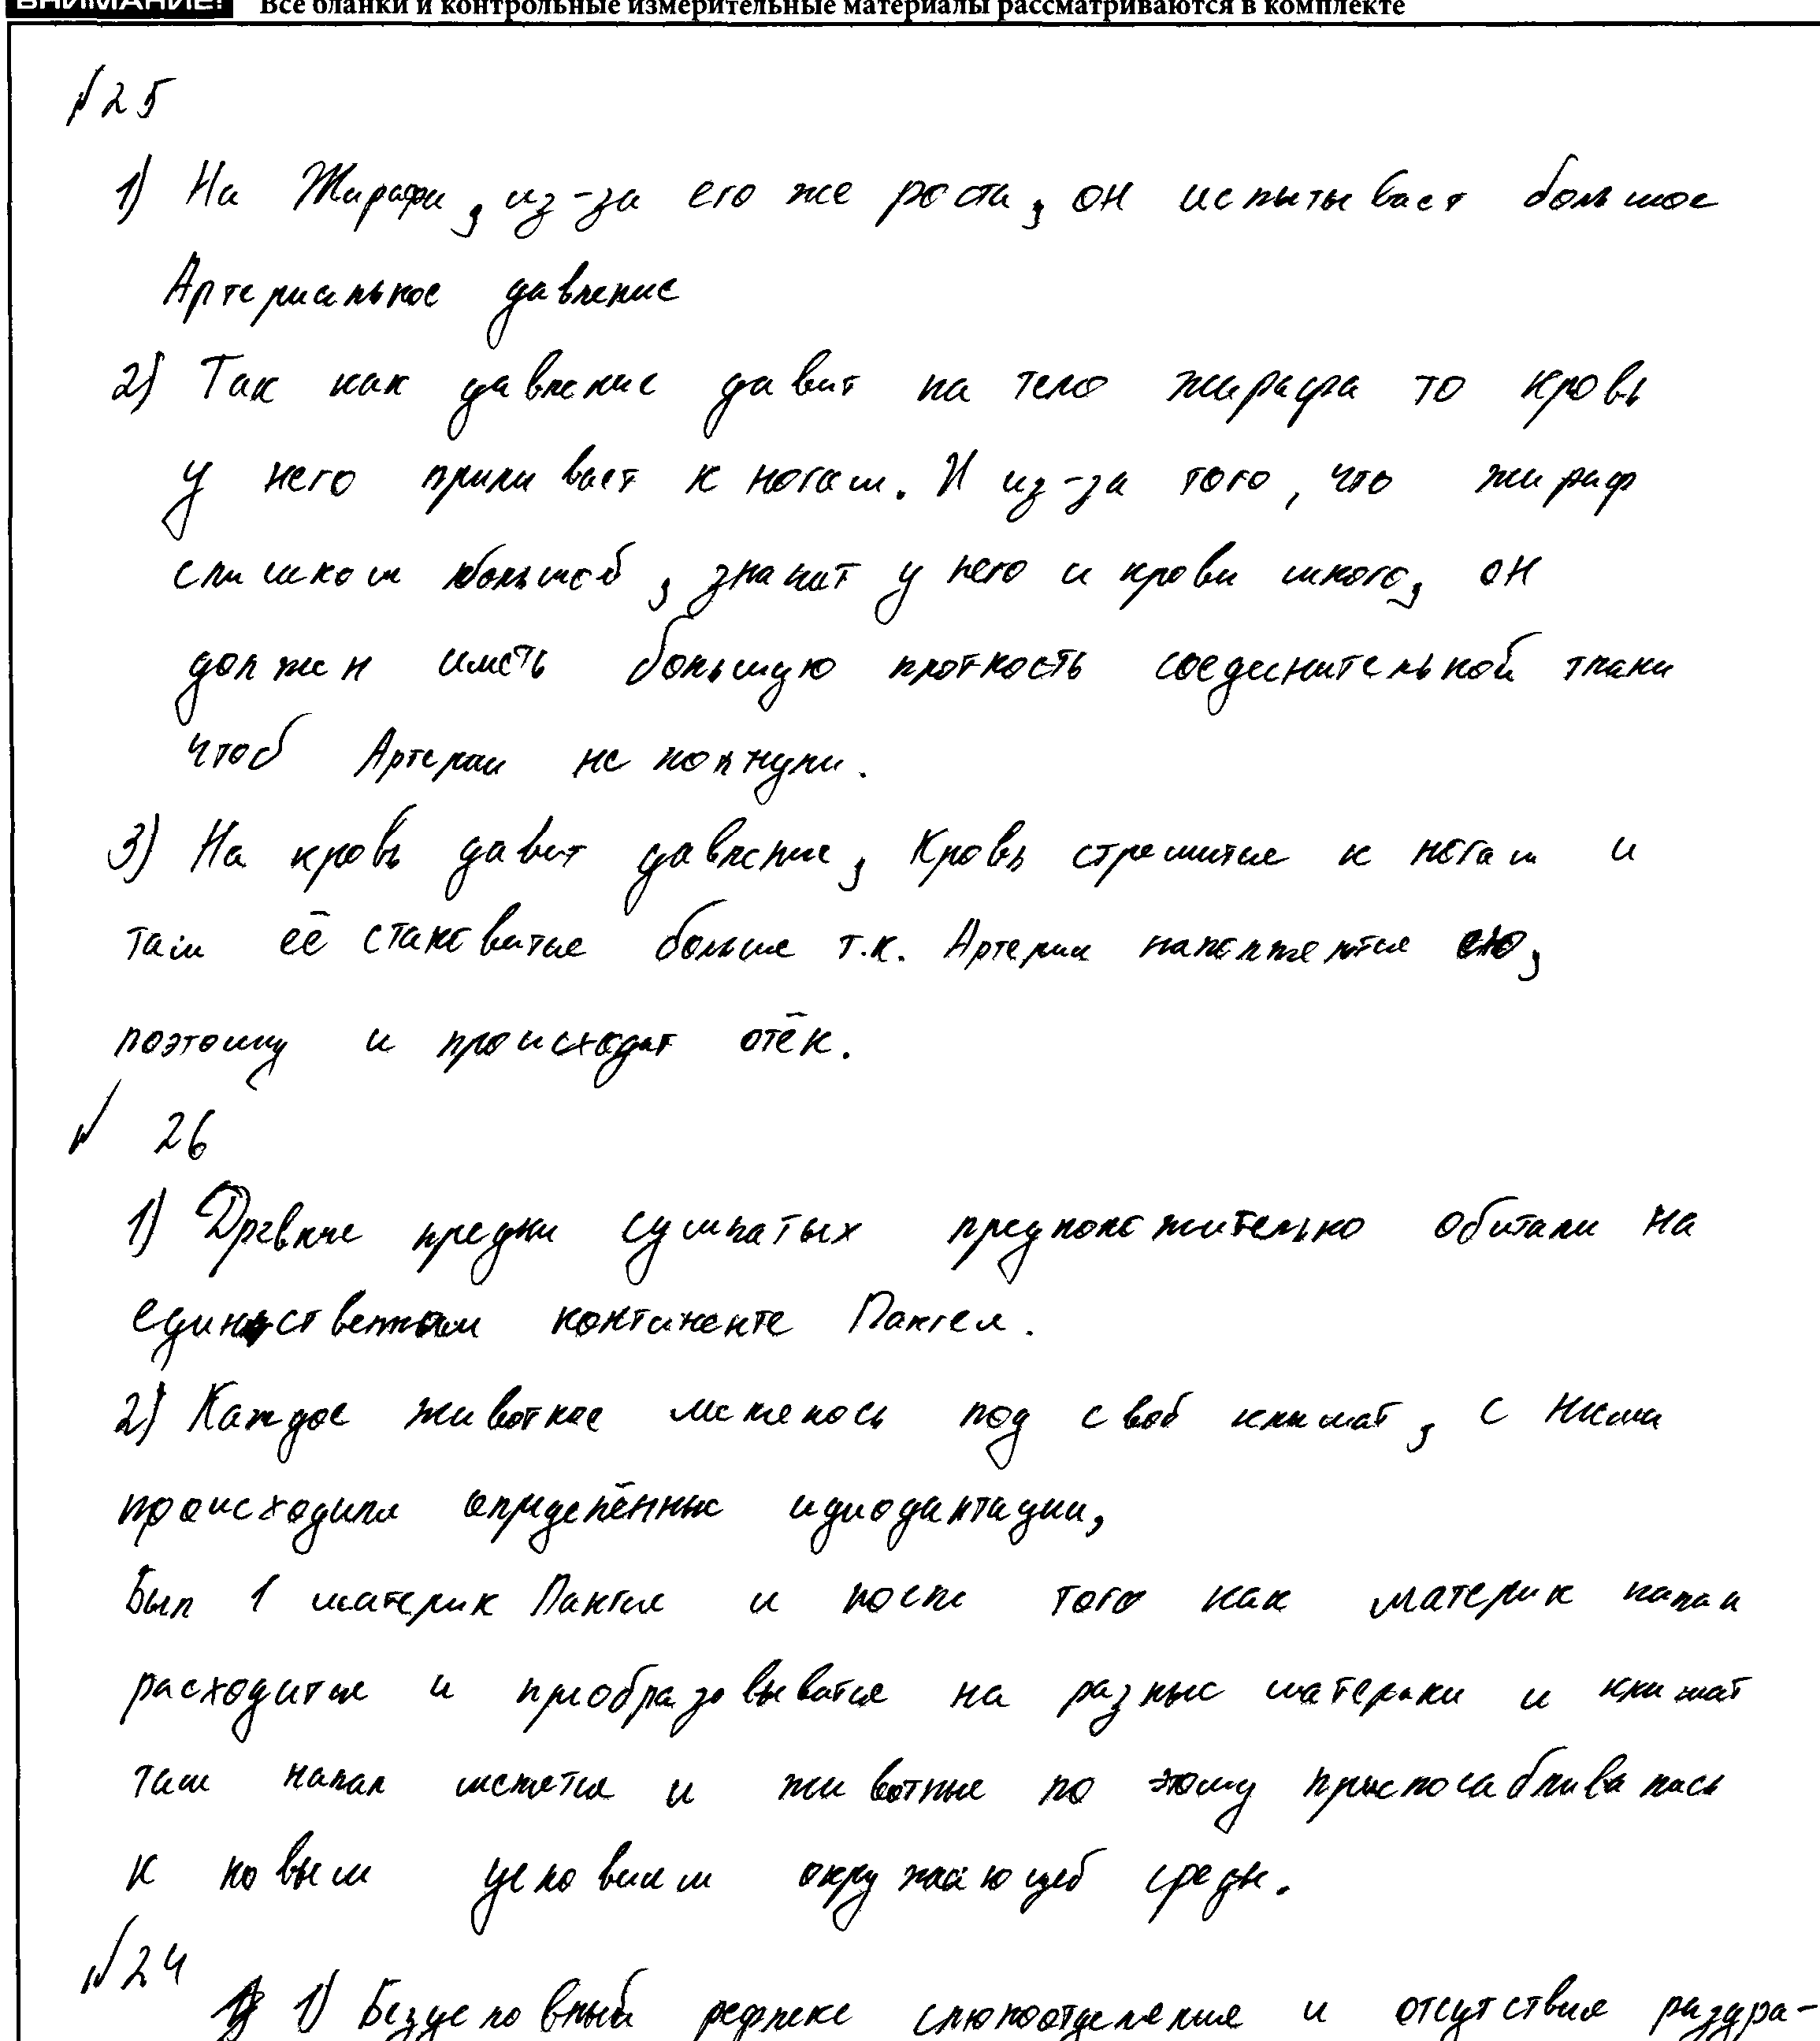 ВНИМАНИЕ! Все бланки и контрольные измерительные материалы рассматриваются в комплекте
№25
1) На Жирафа, из-за его же роста, он испытывает большое
Артериальное давление
2) Так как давление давит на тело жирафа то кровь
у него приливает к ногам. И из-за того, что жираф
слишком большой, значит у него и крови много, он
должен иметь большую плотность соеденительной ткани
чтоб Артерии не лопнули.
3) На кровь давит давление, Кровь стремится к ногам и
там её становится больше т.к. Артерии наполняются ею,
поэтому и происходит отёк.
№ 26
1) Древние предки сумчатых предположительно обитали на
единственном континенте Пангея.
2) Каждое животное менялось под свой климат, с ними
происходили определённые идиодаптации,
Был 1 материк Пангея и после того как материк начал
расходится и преобразовываться на разные материки и климат
там начал менятся и животные по этому приспосабливались
к новым условиям окружающей среды.
№24
1) Безусловный рефлекс слюноотделения и отсутствия раздра-